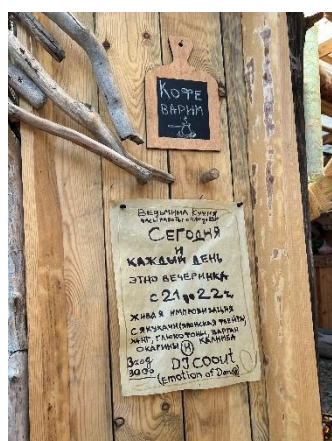 КОФЕ
ВАРИМ
ВЕДЬМИНА КУХНЯ
СЕГОДНЯ
И
КАЖДЫЙ ДЕНЬ
ЭТНО ВЕЧЕРИНКА
С 21 до 22 ч.
ЖИВАЯ ИМПРОВИЗАЦИЯ
СЯКУХАЧИ (ЯПОНСКАЯ ФЛЕЙТА)
ХАНГ, ГЛЮКОФОНЫ, ВАРГАН
ОКАРИНЫ И КАЛИМБА
Вход
300р
DJ COOUT
(Emotion of Dance)